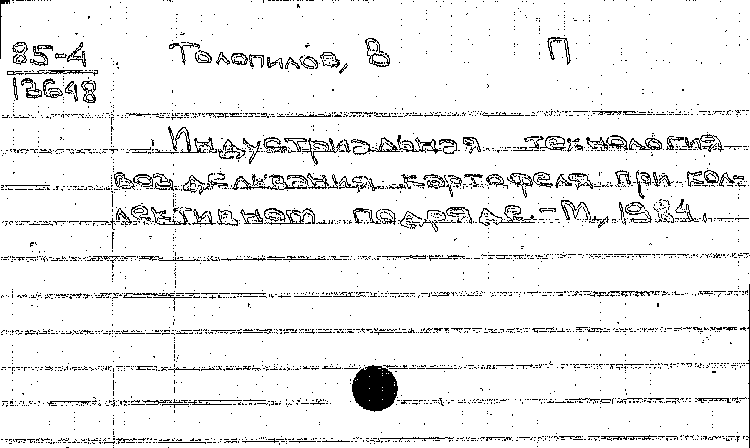 85-4 Тополилов, В П
12648
Индустриальная технология
возделывания картофеля при кол-
лективном подряде.-М., 1984.